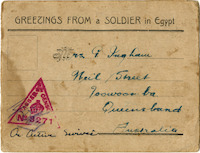 GREETINGS FROM A SOLDIER in Egypt
Mrs F Ingham
Neil Street
Toowoomba
Queensland
Australia
No 3271
On Active Service